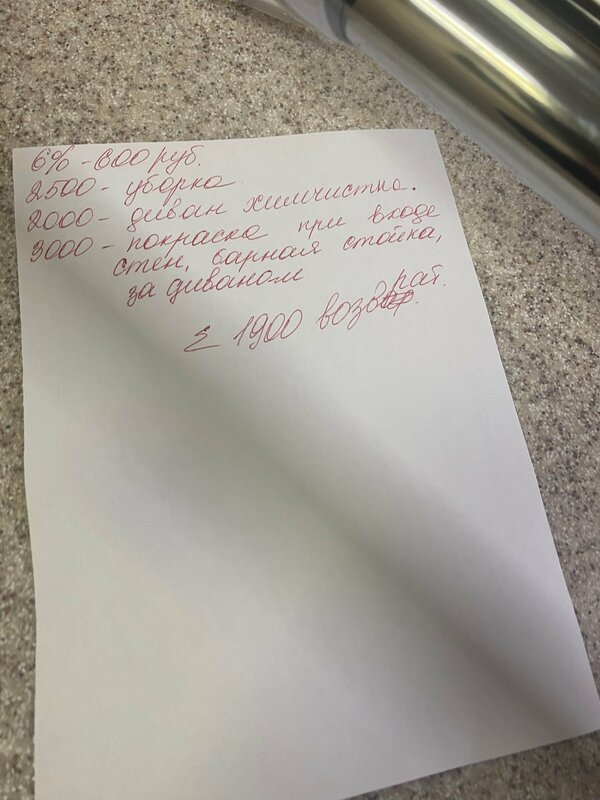 6% - 600 руб.
2500 - уборка
2000 - диван химчистка.
3000 - покраска при входе
стен, барная стойка,
за диваном
Σ 1900 возврат.